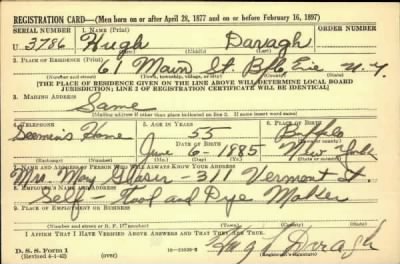 REGISTRATION CARD—(Men born on or after April 28, 1877 and on or before February 16, 1897)
SERIAL NUMBER 1. NAME (Print) ORDER NUMBER
U 3786 Hugh Daragh
(First) (Middle) (Last)
2. PLACE OF RESIDENCE (Print)
61 Main St. Bflo Erie N.Y.
(Number and street) (Town, township, village, or city) (County) (State)
[THE PLACE OF RESIDENCE GIVEN ON THE LINE ABOVE WILL DETERMINE LOCAL BOARD
JURISDICTION; LINE 2 OF REGISTRATION CERTIFICATE WILL BE IDENTICAL]
3. MAILING ADDRESS
Same
(Mailing address if other than place indicated on line 2. If same insert word same)
4. TELEPHONE 5. AGE IN YEARS 6. PLACE OF BIRTH
55 Buffalo
DATE OF BIRTH
June 6 - 1885 New York
7. NAME AND ADDRESS OF PERSON WHO WILL ALWAYS KNOW YOUR ADDRESS
Mrs. May - 31 Vermont St
8. EMPLOYER'S NAME AND ADDRESS
Self - Tool and Dye Maker
9. PLACE OF EMPLOYMENT OR BUSINESS
(Number and street or R. F. D. number) (Town) (County) (State)
I AFFIRM THAT I HAVE VERIFIED ABOVE ANSWERS AND THAT THEY ARE TRUE.
D. S. S. Form 1
(Revised 4-1-42) (over) Hugh Daragh
(Registrant's signature)